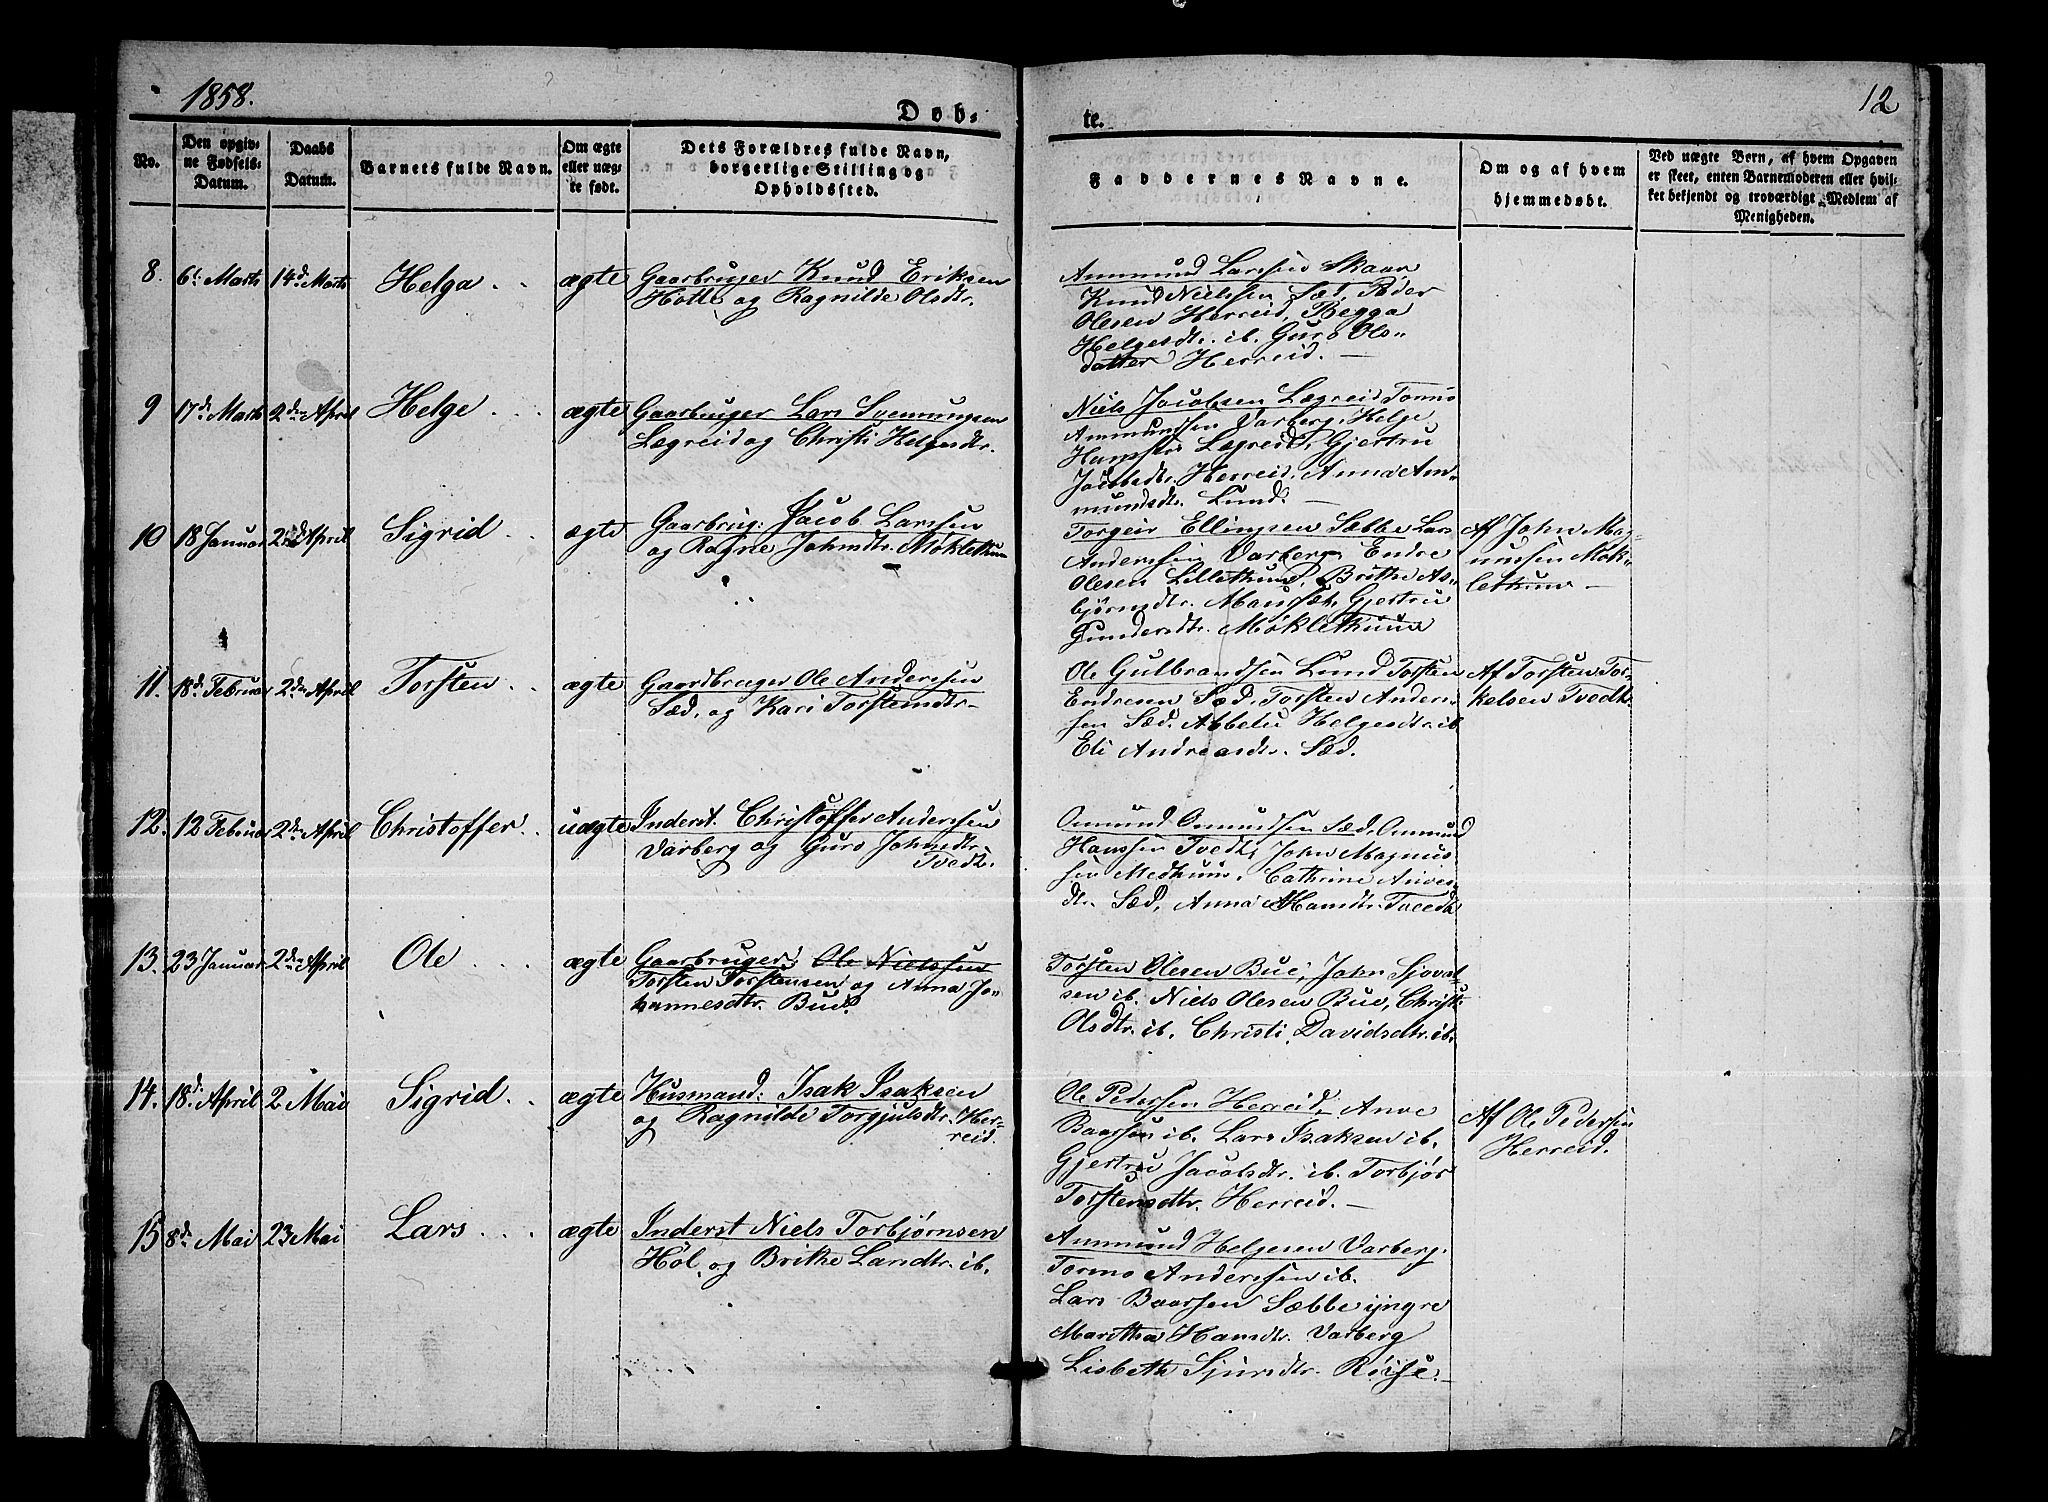 1858.
Døb-
te.
12
No.
Den opgiv-
ne Fødsels-
Datum.
Daabs
Datum.
Barnets fulde Navn.
Om ægte
eller uæg-
te født.
Dets Forældres fulde Navn,
borgerlige Stilling og
Opholdssted.
Faddernes Navne.
Om og af hvem
hjemmedøbt.
Ved uægte Børn, af hvem Opgaven
er skeet, enten Barnemoderen eller hvil-
ket bekjendt og troværdigt Medlem af
Menigheden.
8. 6t. Marts 14d. Marts Helga . . ægte Gaarbruger Knud Eriksen
Hotle og Ragnilde Olsdtr.
Ammund Larssen Skaar
Knud Nielssen Sæd, Peder
Olesen Herreid, Begga
Helgesdtr. ib. Guro Ols-
datter Herreid. —
9 17d. Marts 2den April Helge . . . ægte Gaarbruger Lars Svenungsen
Lægreid og Christi Helgesdtr.
Niels Jacobsen Lægreid Tormo
Ammundsen Varberg, Helge
Lægreid, Gjertru
Jacobsdtr. Herreid, Anna Am-
mundsdtr. Lund. —
10 18 Januar 2den April Sigrid . . ægte Gaarbrug: Jacob Larssen
og Ragne Johnsdtr. Møklethun
Torgeir Ellingsen Sæbbe Lars
Anderssen Varberg, Endre
Olesen Lillethun, Brithe As-
bjørnsdtr. Maursæt, Gjertru
Gundersdtr. Møklethun
Af John Mag-
nussen Møk-
lethun —
11. 18d. Februar 2den April Torsten . . ægte Gaardbruger Ole Anderssen
Sæd, og Kari Torstensdtr.-
Ole Gulbrandsen Lund Torsten
Endresen Sæd, Torsten Anders-
sen Sæd. Abbelu Helgesdtr. ib
Eli Andreasdtr. Sæd.
Af Torsten Tor-
kelsen Tvedt.
12. 12 Februar 2den April Christoffer . . uægte Inderst. Christoffer Anderssen
Varberg og Guro Johnsdtr.
Tvedt.
Omund Omundsen Sæd, Omund
Hanssen Tvedt, John Magnus-
sen Medhuus, Cathrine Anves-
dtr. Sæd, Anna Hansdtr. Tveedt
13. 23 Januar 2den April Ole . . . ægte Gaarbruger, Ole Nielssen
Torsten Torstensen og Anna Jo-
hannesdtr. Bue.
Torsten Olesen Bue, John Sjovat
sen ib. Niels Olesen Bue, Christi
Olsdtr. ib. Christi Davidsdtr. ib.
14. 18d. April 2. Mai Sigrid . . ægte Husmand: Isak Isaksen
og Ragnilde Torgjulsdtr. Her-
reid.
Ole Pedersen Herreid, Anve
Baarsen ib. Lars Isaksen ib.
Gjertru Jacobsdtr. ib. Torbjør
Torstensdtr. Herreid. —
Af Ole Pedersen
Herreid.
15 8d. Mai 23 Mai Lars . . . ægte Inderst Niels Torbjørnsen
Hol og Brithe Larsdtr. ib.
Ammund Helgesen Varberg.
Tormo Anderssen ib.
Lars Baarsen Sæbbe yngre
Maritha Hansdtr. Varberg
Lisbeth Sjursdtr. Røise. —